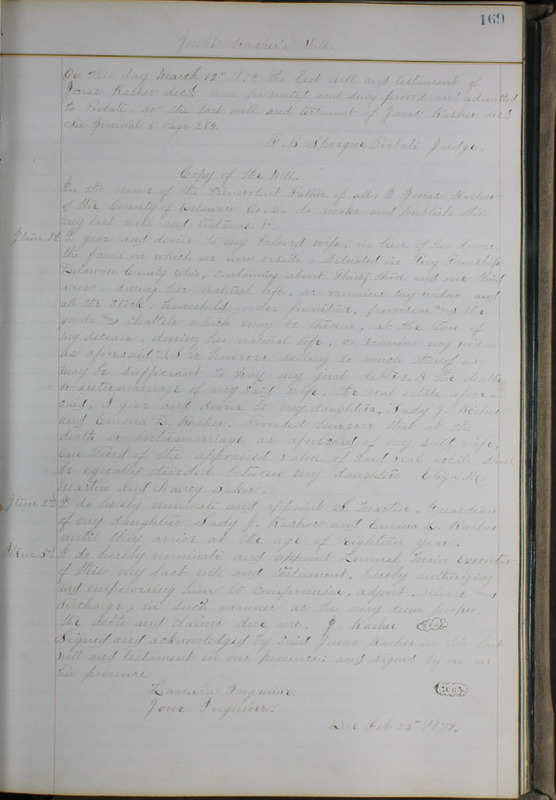 169
Jonas Kasher's Will.
On this day March 12th 1879, the last will and testament of
Jonas Kasher decd. was presented and duly proved and admitted
to Probate, as the last will and testament of Jonas Kasher decd.
See Journal 5 Page 289.
F. B. Sprague Probate Judge.
Copy of the Will.
In the name of the Benevolent Father of all, I Jonas Kasher
of the County of Delaware do make and publish this
my last will and testament.
Item 1st I give and devise to my beloved wife, in lieu of her dower
the farm on which we now reside, situated in Troy Township,
Delaware County Ohio, containing about Thirty three and one third
acres, during her natural life, or remains my widow and
all the stock, household goods, furniture, provision and the
goods and chattels which may be thereon, at the time of
my decease, during her natural life, or remains my widow
as aforesaid. She however selling so much thereof as
may be sufficient to pay my just debts. At the death
or intermarriage of my said wife, the real estate afore-
said, I give and devise to my daughters, Sady J. Kasher
and Emma D. Kasher, Provided however that at the
death or intermarriage as aforesaid of my said wife,
one third of the appraised value of said real estate shall
be equally divided between my daughters Eliza M.
Martin and Nancy Baker.
Item 2d I do hereby nominate and appoint S. Martin, Guardian
of my daughters Sady J. Kasher and Emma D. Kasher
until they arrive at the age of eighteen years.
Item 3d I do hereby nominate and appoint Lemuel Main Executor
of this my last will and testament, hereby authorizing
and empowering him to compromise, adjust, release and
discharge, in such manner as he may deem proper,
the debts and claims due me. J. Kasher
Signed and acknowledged by said Jonas Kasher as his last
will and testament in our presence, and signed by us in
his presence
Dec Feb 25th 1879.